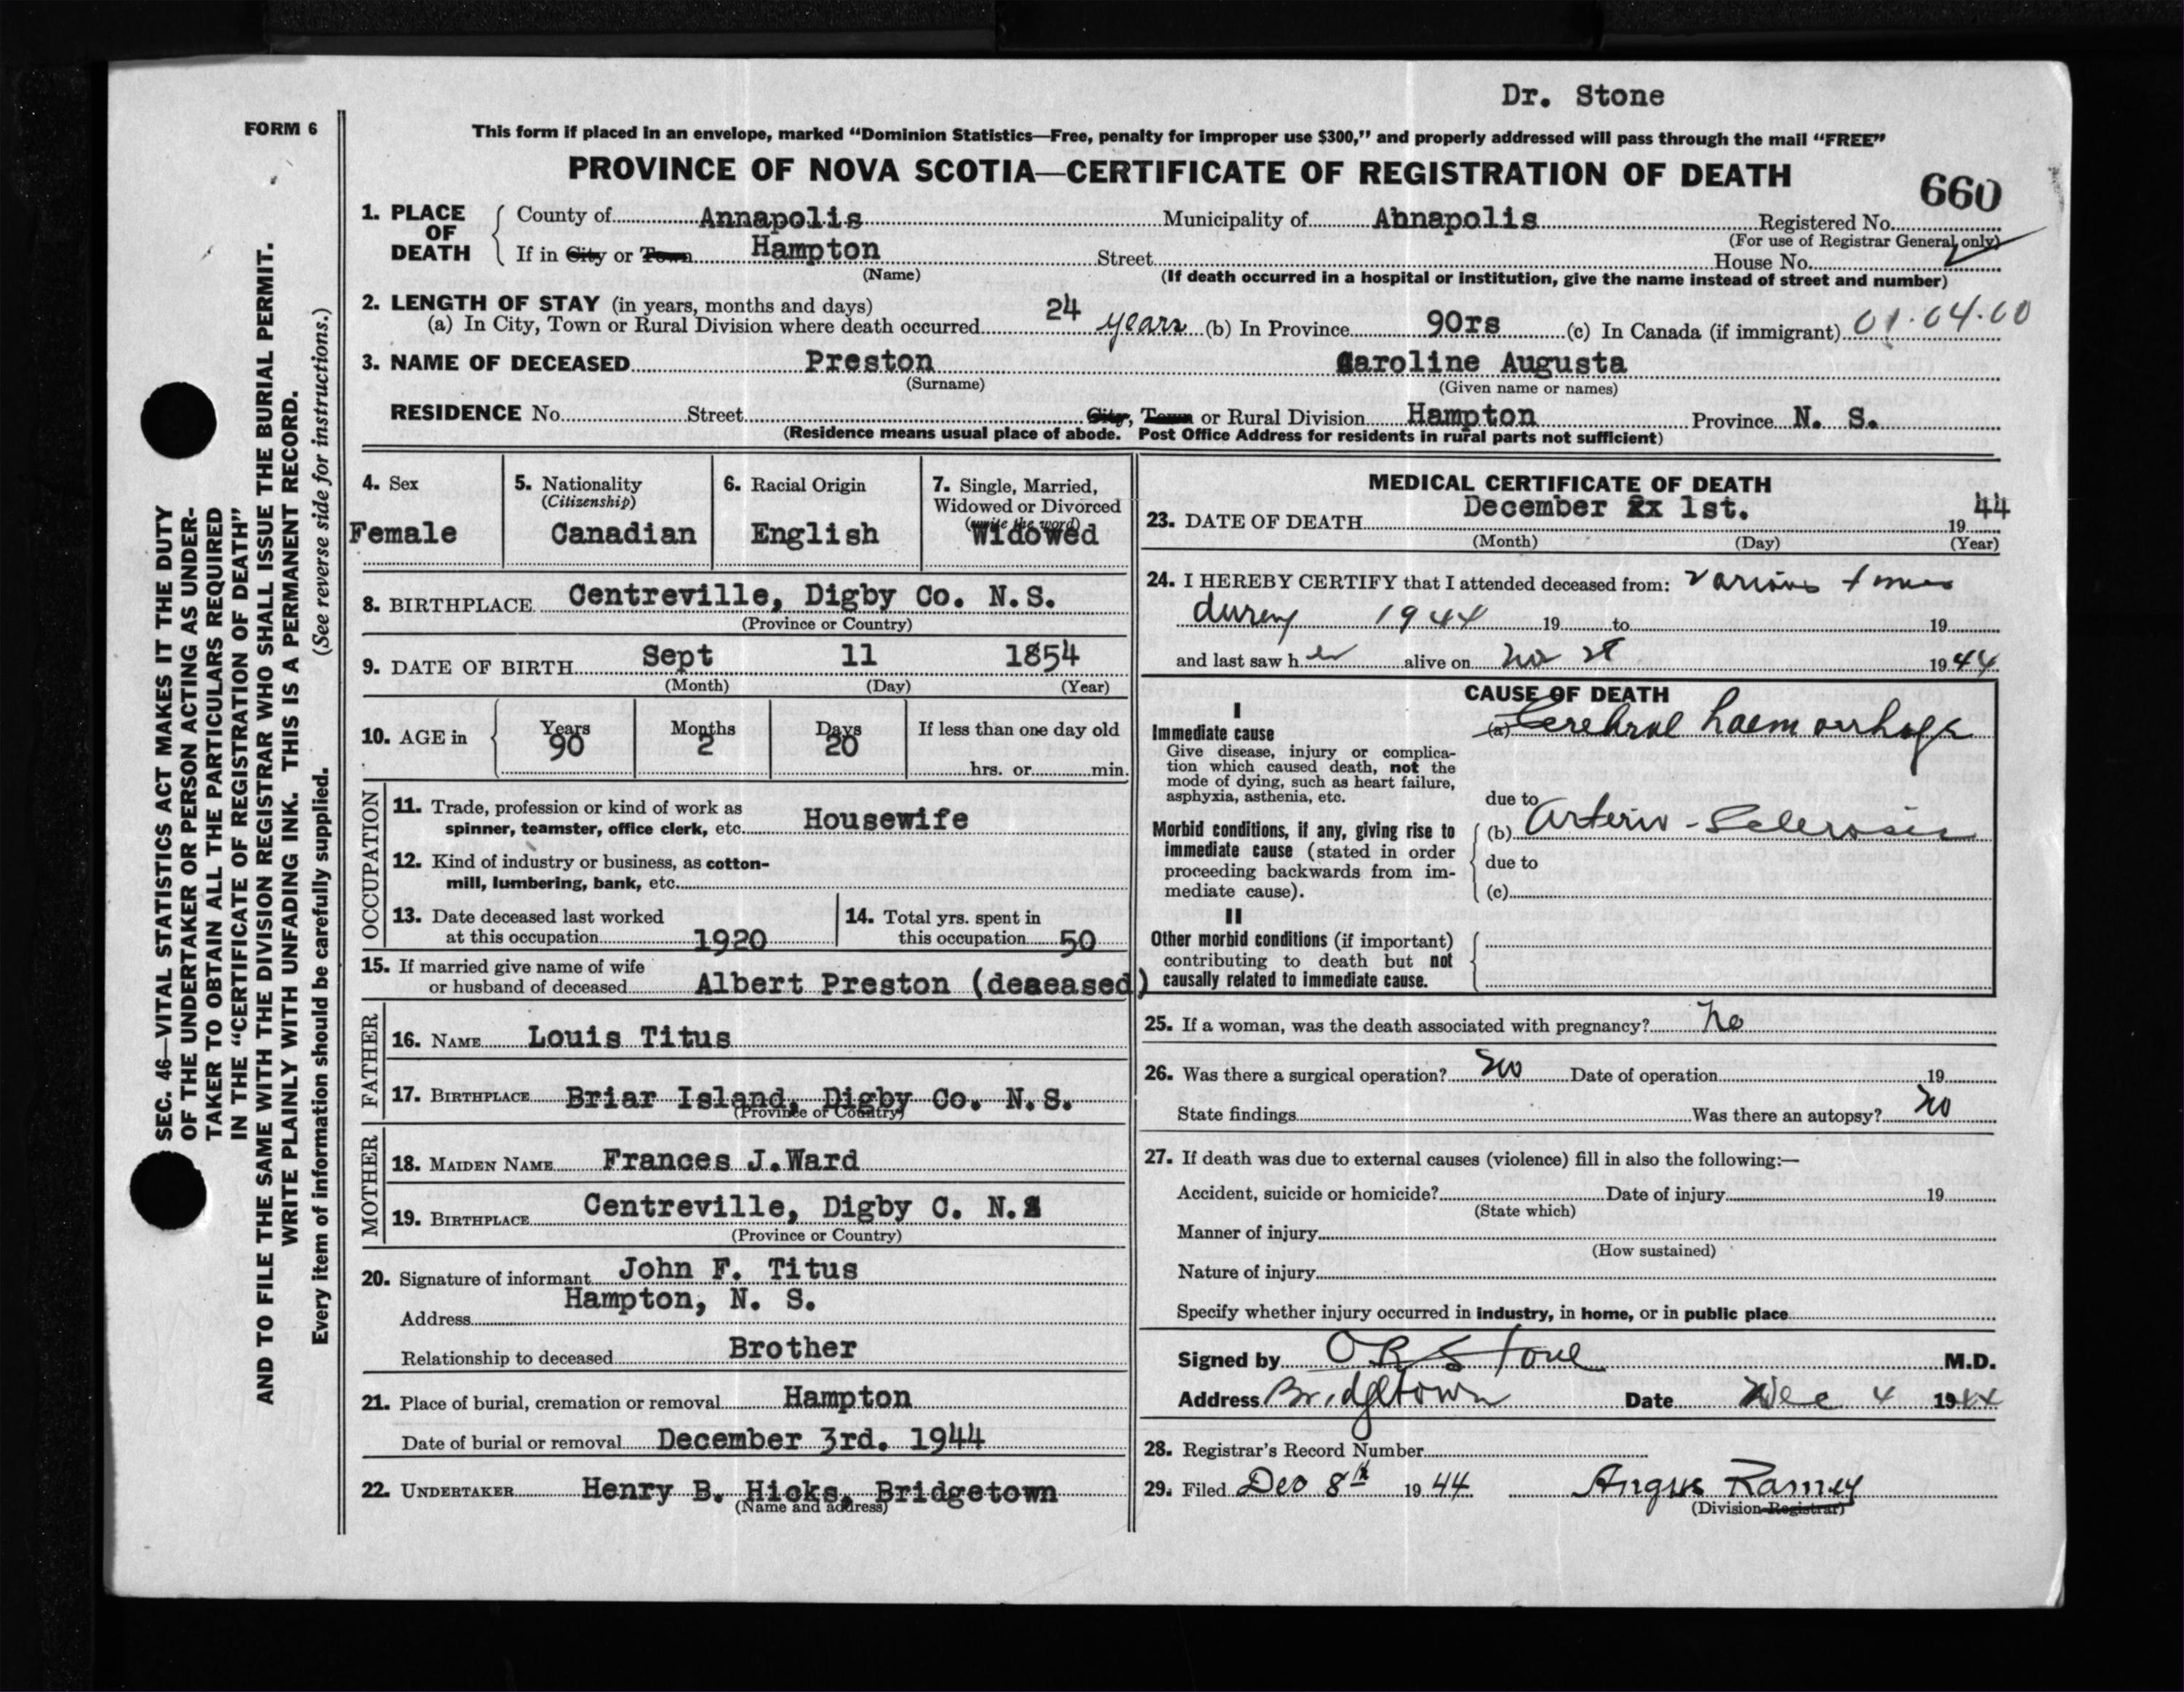 Dr. Stone
FORM 6
This form if placed in an envelope, marked “Dominion Statistics—Free, penalty for improper use $300,” and properly addressed will pass through the mail “FREE”
PROVINCE OF NOVA SCOTIA—CERTIFICATE OF REGISTRATION OF DEATH
660
1. PLACE OF DEATH County of Annapolis Municipality of Annapolis Registered No.
(For use of Registrar General only)
If in City or Town Hampton Street House No.
(Name) (If death occurred in a hospital or institution, give the name instead of street and number)
2. LENGTH OF STAY (in years, months and days)
(a) In City, Town or Rural Division where death occurred 24 years (b) In Province 90rs (c) In Canada (if immigrant) 01.04.00
3. NAME OF DECEASED Preston Caroline Augusta
(Surname) (Given name or names)
RESIDENCE No. Street City, Town or Rural Division Hampton Province N. S.
(Residence means usual place of abode. Post Office Address for residents in rural parts not sufficient)
4. Sex
Female
5. Nationality
(Citizenship)
Canadian
6. Racial Origin
English
7. Single, Married,
Widowed or Divorced
(write the word)
Widowed
8. BIRTHPLACE Centreville, Digby Co. N.S.
(Province or Country)
9. DATE OF BIRTH Sept 11 1854
(Month) (Day) (Year)
10. AGE in Years 90 Months 2 Days 20 If less than one day old
hrs. or min.
OCCUPATION
11. Trade, profession or kind of work as
spinner, teamster, office clerk, etc. Housewife
12. Kind of industry or business, as cotton-
mill, lumbering, bank, etc.
13. Date deceased last worked
at this occupation 1920
14. Total yrs. spent in
this occupation 50
15. If married give name of wife
or husband of deceased Albert Preston (deaeased)
FATHER
16. NAME Louis Titus
17. BIRTHPLACE Briar Island, Digby Co. N.S.
(Province or Country)
MOTHER
18. MAIDEN NAME Frances J.Ward
19. BIRTHPLACE Centreville, Digby C. N.S
(Province or Country)
20. Signature of informant John F. Titus
Address Hampton, N. S.
Relationship to deceased Brother
21. Place of burial, cremation or removal Hampton
Date of burial or removal December 3rd. 1944
22. UNDERTAKER Henry B. Hicks, Bridgetown
(Name and address)
MEDICAL CERTIFICATE OF DEATH
23. DATE OF DEATH December 2x 1st. 1944
(Month) (Day) (Year)
24. I HEREBY CERTIFY that I attended deceased from: various times
during 1944 19 to 19
and last saw h er alive on Nov 28 1944
CAUSE OF DEATH
I
Immediate cause
Give disease, injury or complica-
tion which caused death, not the
mode of dying, such as heart failure,
asphyxia, asthenia, etc.
(a) Cerebral haemorrhage
due to
Morbid conditions, if any, giving rise to
immediate cause (stated in order
proceeding backwards from im-
mediate cause).
(b) Arterio-Sclerosis
due to
(c)
II
Other morbid conditions (if important)
contributing to death but not
causally related to immediate cause.
25. If a woman, was the death associated with pregnancy? No
26. Was there a surgical operation? No Date of operation 19
State findings Was there an autopsy? No
27. If death was due to external causes (violence) fill in also the following:—
Accident, suicide or homicide? Date of injury 19
(State which)
Manner of injury
(How sustained)
Nature of injury
Specify whether injury occurred in industry, in home, or in public place
Signed by O R Stone M.D.
Address Bridgetown Date Dec 4 1944
28. Registrar's Record Number
29. Filed Dec 8th 1944 Angus Ramey
(Division Registrar)
SEC. 46—VITAL STATISTICS ACT MAKES IT THE DUTY
OF THE UNDERTAKER OR PERSON ACTING AS UNDER-
TAKER TO OBTAIN ALL THE PARTICULARS REQUIRED
IN THE “CERTIFICATE OF REGISTRATION OF DEATH”
AND TO FILE THE SAME WITH THE DIVISION REGISTRAR WHO SHALL ISSUE THE BURIAL PERMIT.
WRITE PLAINLY WITH UNFADING INK. THIS IS A PERMANENT RECORD.
Every item of information should be carefully supplied. (See reverse side for instructions.)